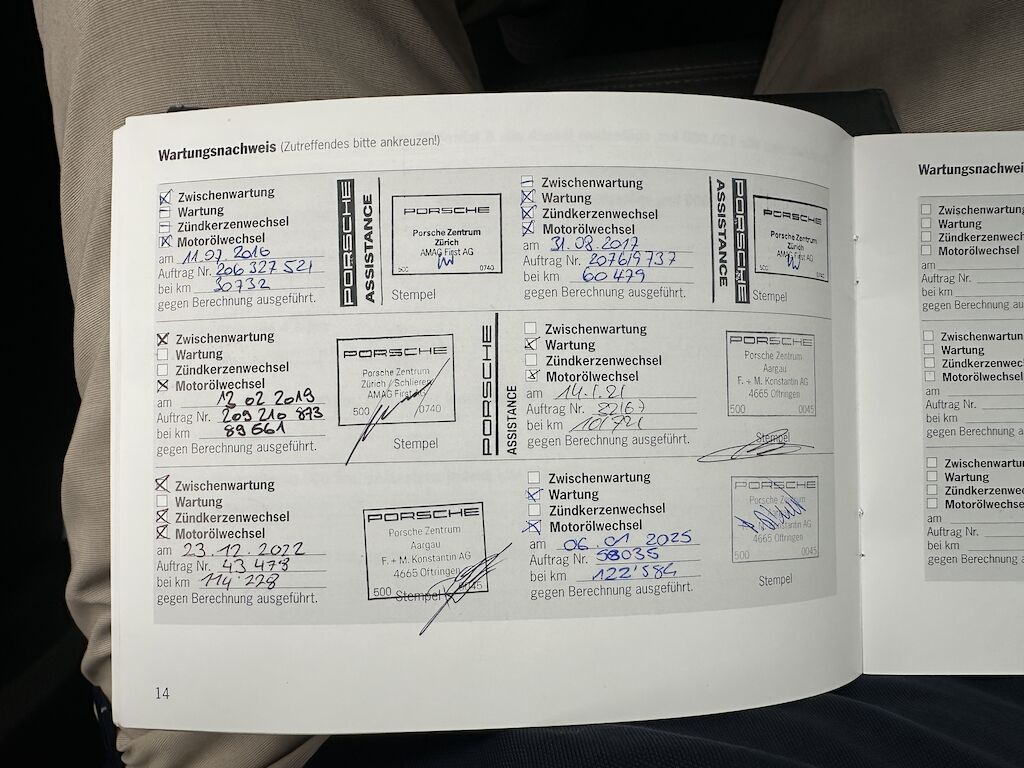 Wartungsnachweis (Zutreffendes bitte ankreuzen!)
Zwischenwartung
Wartung
Zündkerzenwechsel
Motorölwechsel
am 11.07.2016
Auftrag Nr. 206 327 521
bei km 30732
gegen Berechnung ausgeführt.
PORSCHE
ASSISTANCE
PORSCHE
Porsche Zentrum
Zürich
AMAG First AG
500 0740
Stempel
Zwischenwartung
Wartung
Zündkerzenwechsel
Motorölwechsel
am 31.08.2017
Auftrag Nr. 207619737
bei km 60479
gegen Berechnung ausgeführt.
ASSISTANCE
PORSCHE
PORSCHE
Porsche Zentrum
Zürich
AMAG First AG
500 0740
Stempel
Zwischenwartung
Wartung
Zündkerzenwechsel
Motorölwechsel
am 12 02 2019
Auftrag Nr. 209 210 873
bei km 89561
gegen Berechnung ausgeführt.
PORSCHE
Porsche Zentrum
Zürich / Schlieren
AMAG First AG
500 0740
Stempel
PORSCHE
ASSISTANCE
Zwischenwartung
Wartung
Zündkerzenwechsel
Motorölwechsel
am 14.1.21
Auftrag Nr. 32167
bei km 101'721
gegen Berechnung ausgeführt.
PORSCHE
Porsche Zentrum
Aargau
F. + M. Konstantin AG
4665 Oftringen
500 0045
Stempel
Zwischenwartung
Wartung
Zündkerzenwechsel
Motorölwechsel
am 23.12.2022
Auftrag Nr. 43 478
bei km 114'228
gegen Berechnung ausgeführt.
PORSCHE
Porsche Zentrum
Aargau
F. + M. Konstantin AG
4665 Oftringen
500 0045
Stempel
Zwischenwartung
Wartung
Zündkerzenwechsel
Motorölwechsel
am 06.01 2025
Auftrag Nr. 58035
bei km 122'584
gegen Berechnung ausgeführt.
PORSCHE
Porsche Zentrum
4665 Oftringen
500 0045
Stempel
14
Wartungsnachwei
Zwischenwartung
Wartung
Zündkerzenwechse
Motorölwechsel
am
Auftrag Nr.
bei km
gegen Berechnung au
Zwischenwartung
Wartung
Zündkerzenwechse
Motorölwechsel
am
Auftrag Nr.
bei km
gegen Berechnung au
Zwischenwartung
Wartung
Zündkerzenwechse
Motorölwechsel
am
Auftrag Nr.
bei km
gegen Berechnung au